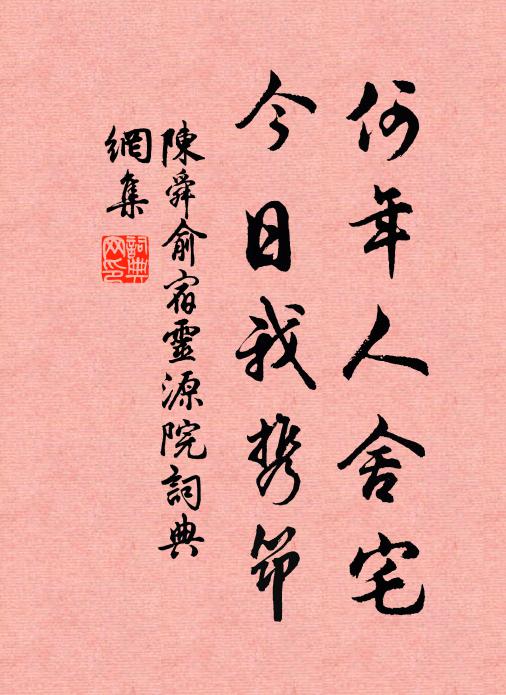 何年人舍宅
今日我携筇
陳舜俞宿靈源院詞典
網集
詞典
网印